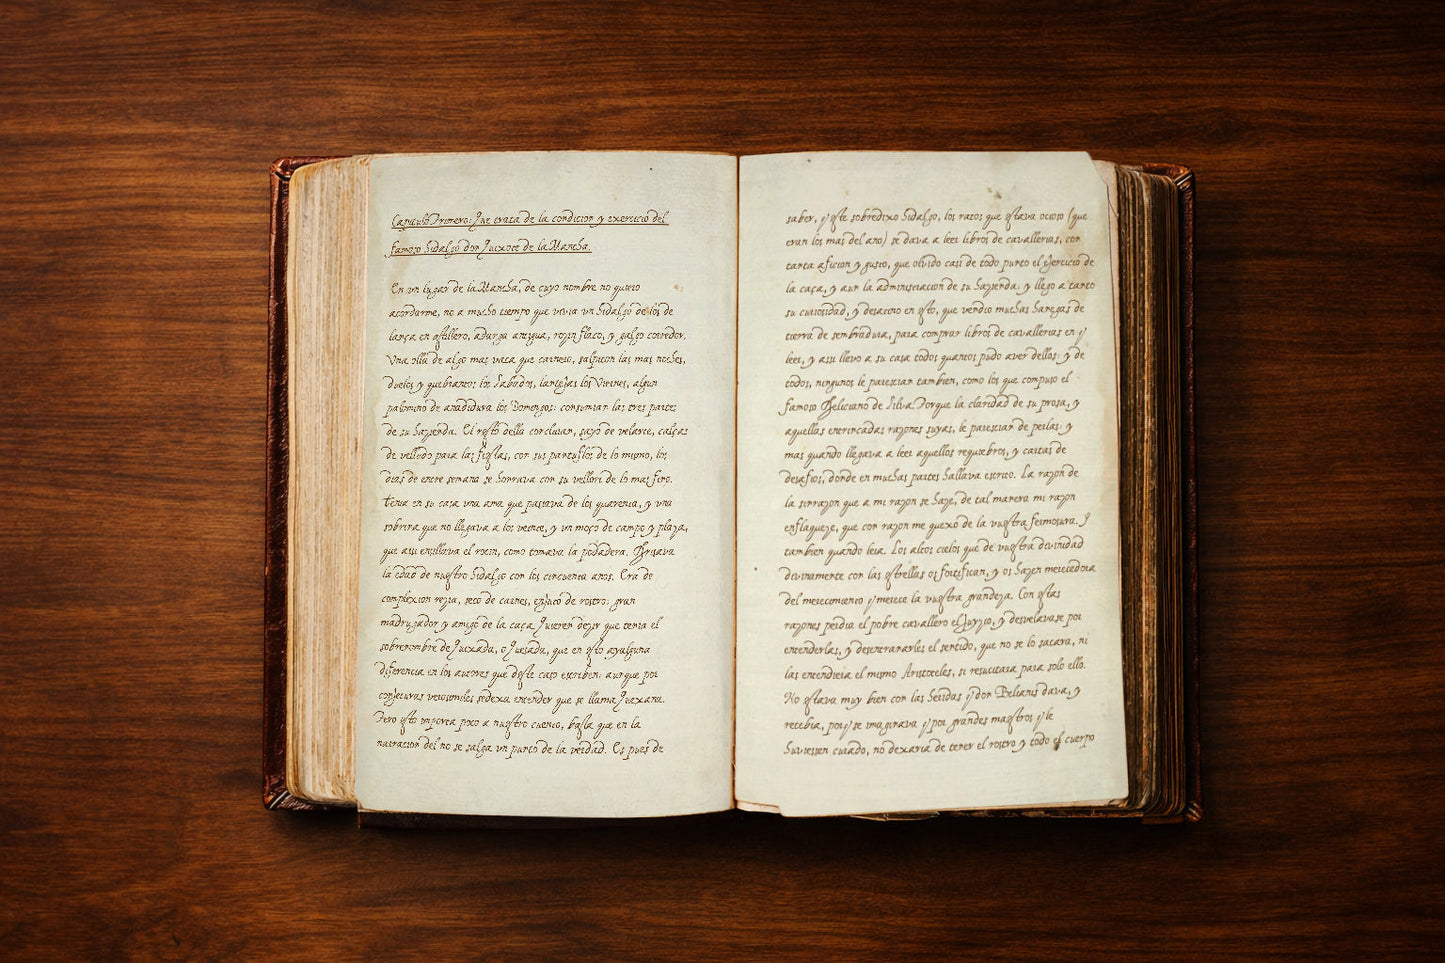 Capitulo Primero: Que trata de la condicion y exercicio del
famoso hidalgo don Quixote de la Mancha.
En vn lugar de la Mancha, de cuyo nombre no quiero
acordarme, no a mucho tiempo que viuia vn hidalgo de los de
lança en astillero, adarga antigua, rozin flaco, y galgo corredor.
Vna olla de algo mas vaca que carnero, salpicon las mas noches,
duelos y quebrantos los Sabados, lantejas los Viernes, algun
palomino de añadidura los Domingos: consumian las tres partes
de su hazienda. El resto della concluian, sayo de velarte, calças
de velludo para las fiestas, con sus pantuflos de lo mismo, los
dias de entre semana se honraua con su vellori de lo mas fino.
Tenia en su casa vna ama que passaua de los quarenta, y vna
sobrina que no llegaua a los veinte, y vn moço de campo y plaça,
que assi ensillaua el rocin, como tomaua la podadera. Frisaua
la edad de nuestro hidalgo con los cincuenta años. Era de
complexion rezia, seco de carnes, enjuto de rostro: gran
madrugador y amigo de la caça. Quieren dezir que tenia el
sobrenombre de Quixada, o Quesada, que en esto ay alguna
diferencia en los autores que deste caso escriben: aunque por
conjeturas verosimiles se dexa entender que se llama Quexana.
Pero esto importa poco a nuestro cuento, basta que en la
narracion del no se salga vn punto de la verdad. Es pues de
saber, q̃ este sobredicho hidalgo, los ratos que estaua ocioso (que
eran los mas del año) se daua a leer libros de cauallerias, con
tanta aficion y gusto, que oluido casi de todo punto el ejercicio de
la caça, y aun la administracion de su hazienda: y llego a tanto
su curiosidad, y desatino en esto, que vendio muchas hanegas de
tierra de sembradura, para comprar libros de cauallerias en q̃
leer, y assi lleuo a su casa todos quantos pudo auer dellos: y de
todos, ningunos le parecian tambien, como los que compuso el
famoso Feliciano de Silua. Porque la claridad de su prosa, y
aquellas entrincadas razones suyas, le parecian de perlas: y
mas quando llegaua a leer aquellos requiebros, y cartas de
desafios, donde en muchas partes hallaua escrito. La razon de
la sinrazon que a mi razon se haze, de tal manera mi razon
enflaqueze, que con razon me quexo de la vuestra fermosura. Y
tambien quando leia. Los altos cielos que de vuestra diuinidad
diuinamente con las estrellas os fortifican, y os hazen merecedora
del merecimiento q̃ merece la vuestra grandeza. Con estas
razones perdia el pobre cauallero el juyzio, y desvelauase por
entenderlas, y desentrañarles el sentido, que no se lo sacara, ni
las entendiera el mismo Aristoteles, si resucitara para solo ello.
No estaua muy bien con las heridas q̃ don Belianis daua, y
recebia, porq̃ se imaginaua q̃ por grandes maestros q̃ le
huuiessen curado, no dexaria de tener el rostro y todo el cuerpo